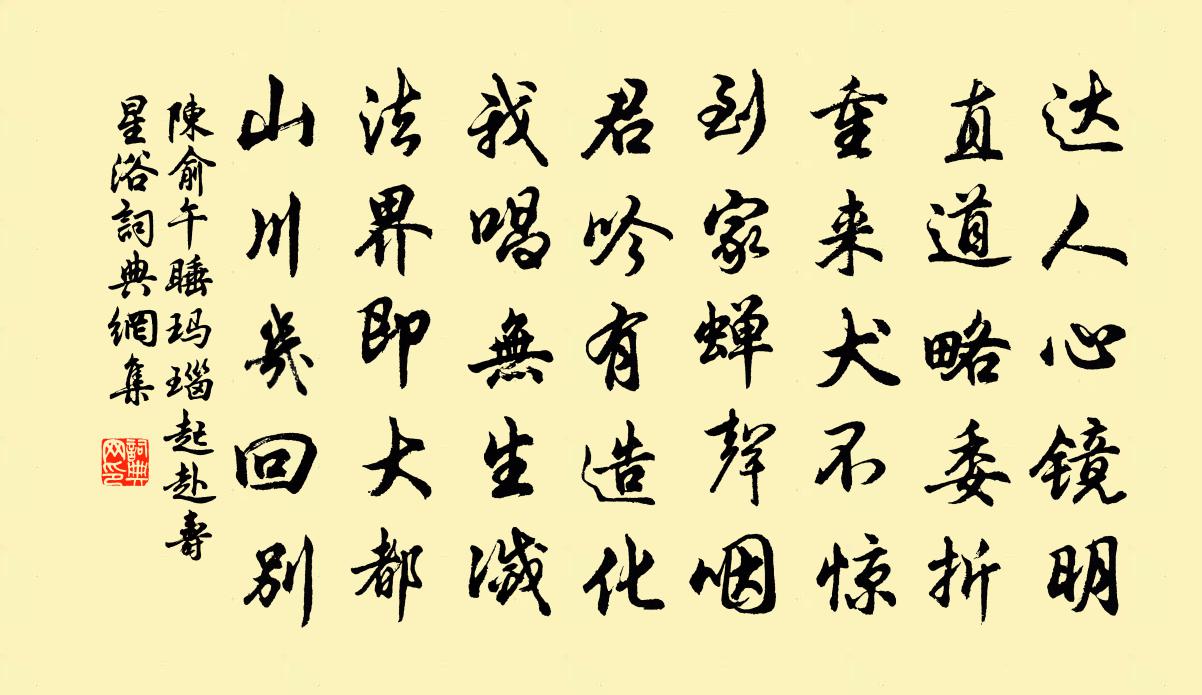 达人心镜明
直道略委折
重来犬不惊
到家蝉声咽
君吟有造化
我唱無生滅
法界即大都
山川幾回别
陳俞午睡玛瑙起赴寿
星浴詞典網集
詞典網印